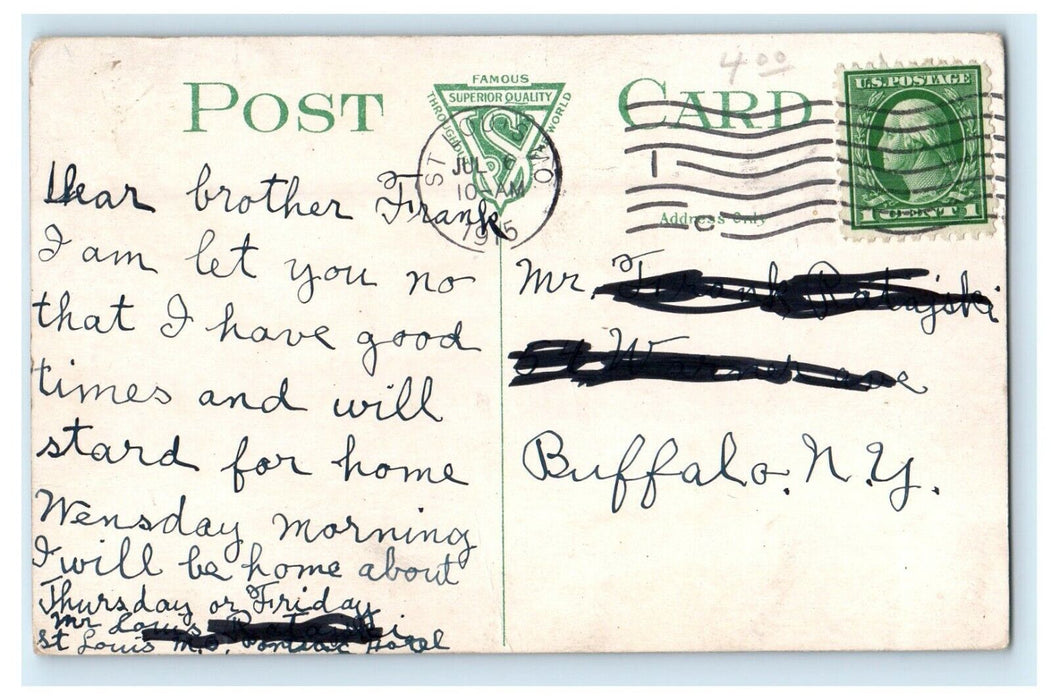 4 00
POST CARD
FAMOUS
SUPERIOR QUALITY
THROUGHOUT
WORLD
ST LOUIS MO.
JUL 6
10-AM
1915
U.S. POSTAGE
1 CENT 1
Address Only
Dear brother Frank
I am let you no
that I have good
times and will
stard for home
Wensday morning
I will be home about
Thursday or Friday
Mr Louis
St Louis M.O. Pontiac Hotel
Mr.
Buffalo. N.Y.